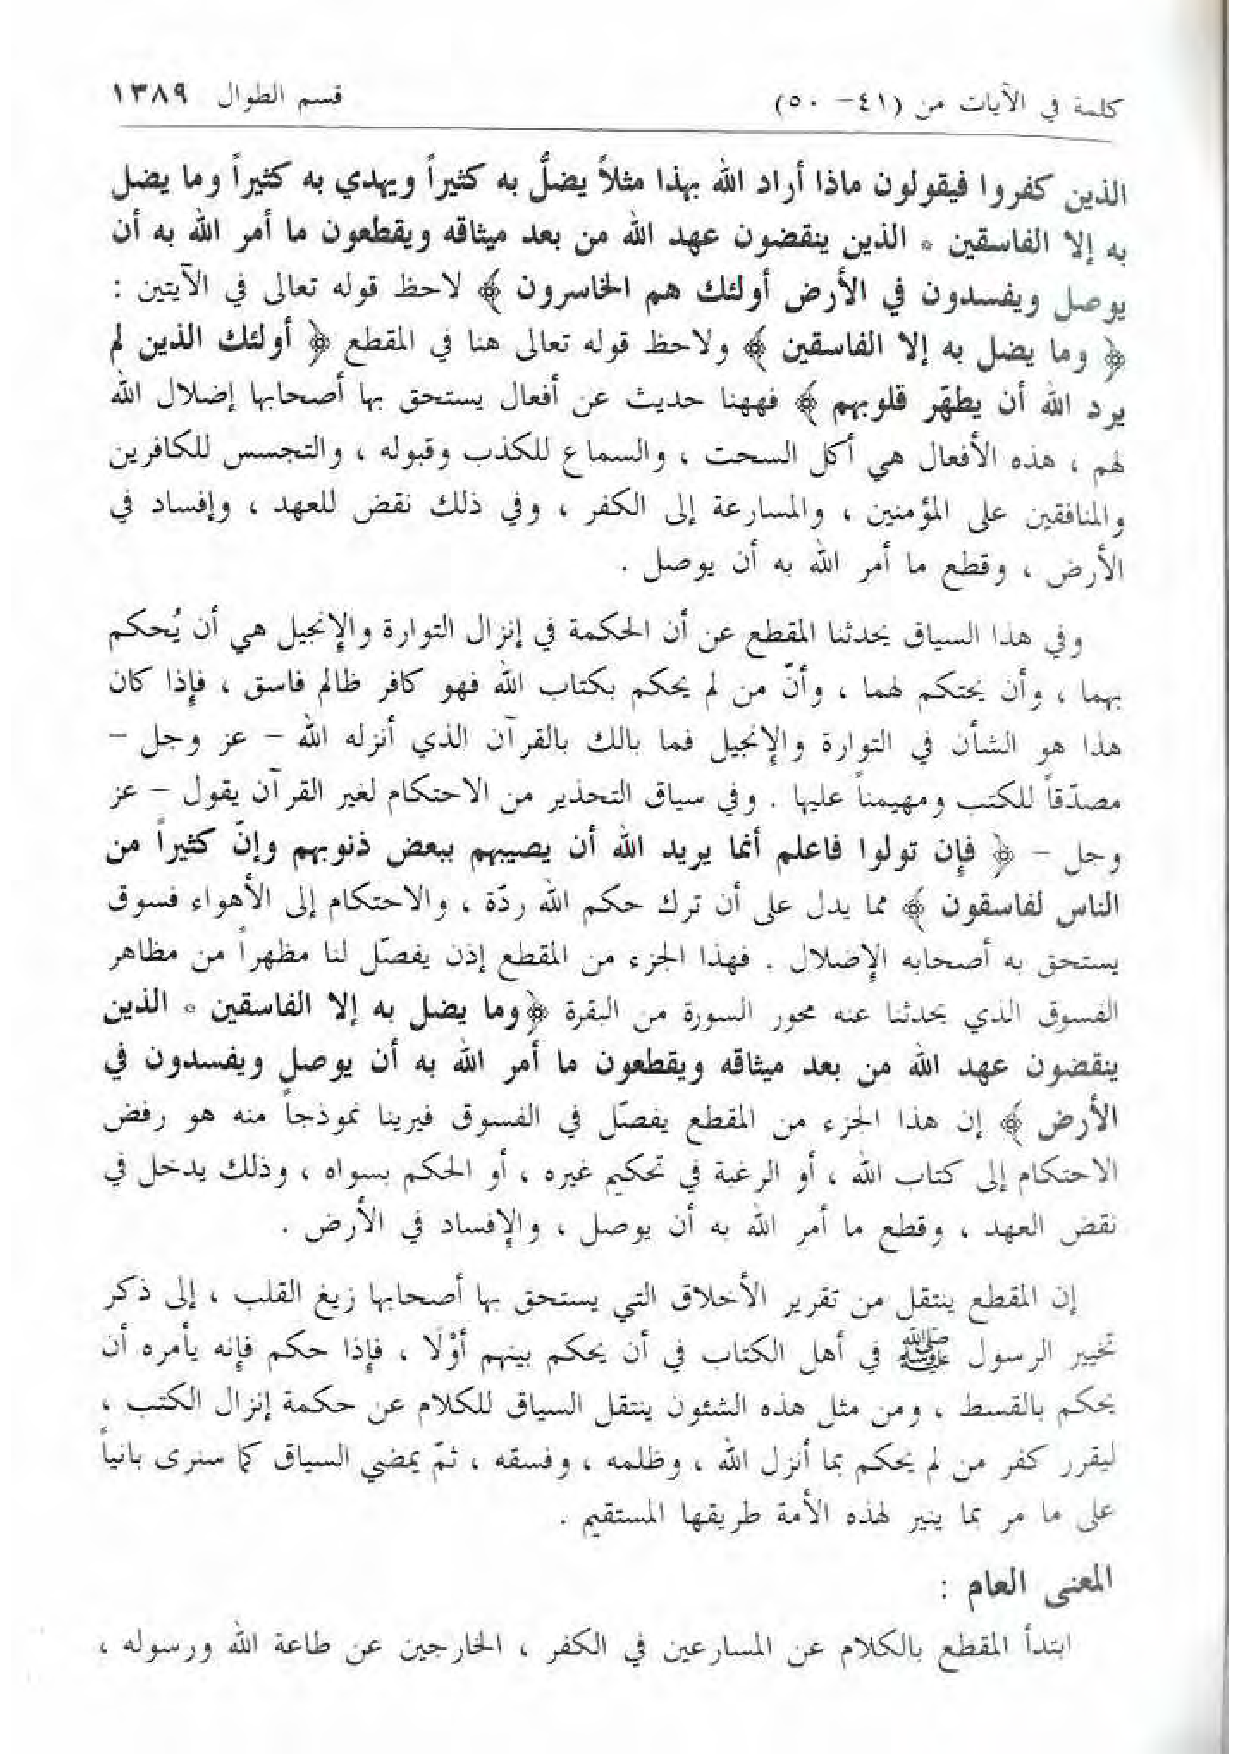 كلمة في الآيات من (٤١- ٥٠)
قسم الطوال ١٣٨٩
الذين كفروا فيقولون ماذا أراد الله بهذا مثلاً يضلُّ به كثيراً ويهدي به كثيراً وما يضل
به إلا الفاسقين * الذين ينقضون عهد الله من بعد ميثاقه ويقطعون ما أمر الله به أن
يوصل ويفسدون في الأرض أولئك هم الخاسرون ﴾ لاحظ قوله تعالى في الآيتين :
﴿ وما يضل به إلا الفاسقين ﴾ ولاحظ قوله تعالى هنا في المقطع ﴿ أولئك الذين لم
يرد الله أن يطهّر قلوبهم ﴾ فههنا حديث عن أفعال يستحق بها أصحابها إضلال الله
لهم ، هذه الأفعال هي أكل السحت ، والسماع للكذب وقبوله ، والتجسس للكافرين
والمنافقين على المؤمنين ، والمسارعة إلى الكفر ، وفي ذلك نقض للعهد ، وإفساد في
الأرض ، وقطع ما أمر الله به أن يوصل .
وفي هذا السياق يحدثنا المقطع عن أن الحكمة في إنزال التوارة والإنجيل هي أن يُحكم
بهما ، وأن يحتكم لهما ، وأنّ من لم يحكم بكتاب الله فهو كافر ظالم فاسق ، فإذا كان
هذا هو الشأن في التوارة والإنجيل فما بالك بالقرآن الذي أنزله الله – عز وجل –
مصدّقاً للكتب ومهيمناً عليها . وفي سياق التحذير من الاحتكام لغير القرآن يقول – عز
وجل – ﴿ فإن تولوا فاعلم أنما يريد الله أن يصيبهم ببعض ذنوبهم وإنّ كثيراً من
الناس لفاسقون ﴾ مما يدل على أن ترك حكم الله ردّة ، والاحتكام إلى الأهواء فسوق
يستحق به أصحابه الإضلال . فهذا الجزء من المقطع إذن يفصّل لنا مظهراً من مظاهر
الفسوق الذي يحدثنا عنه محور السورة من البقرة ﴿وما يضل به إلا الفاسقين * الذين
ينقضون عهد الله من بعد ميثاقه ويقطعون ما أمر الله به أن يوصل ويفسدون في
الأرض ﴾ إن هذا الجزء من المقطع يفصّل في الفسوق فيرينا نموذجاً منه هو رفض
الاحتكام إلى كتاب الله ، أو الرغبة في تحكيم غيره ، أو الحكم بسواه ، وذلك يدخل في
نقض العهد ، وقطع ما أمر الله به أن يوصل ، والإفساد في الأرض .
إن المقطع ينتقل من تقرير الأخلاق التي يستحق بها أصحابها زيغ القلب ، إلى ذكر
تخيير الرسول ﷺ في أهل الكتاب في أن يحكم بينهم أوْلَا ، فإذا حكم فإنه يأمره أن
يحكم بالقسط ، ومن مثل هذه الشئون ينتقل السياق للكلام عن حكمة إنزال الكتب ،
ليقرر كفر من لم يحكم بما أنزل الله ، وظلمه ، وفسقه ، ثمّ يمضي السياق كما سنرى بانياً
على ما مر بما ينير لهذه الأمة طريقها المستقيم .
المعنى العام :
ابتدأ المقطع بالكلام عن المسارعين في الكفر ، الخارجين عن طاعة الله ورسوله ،